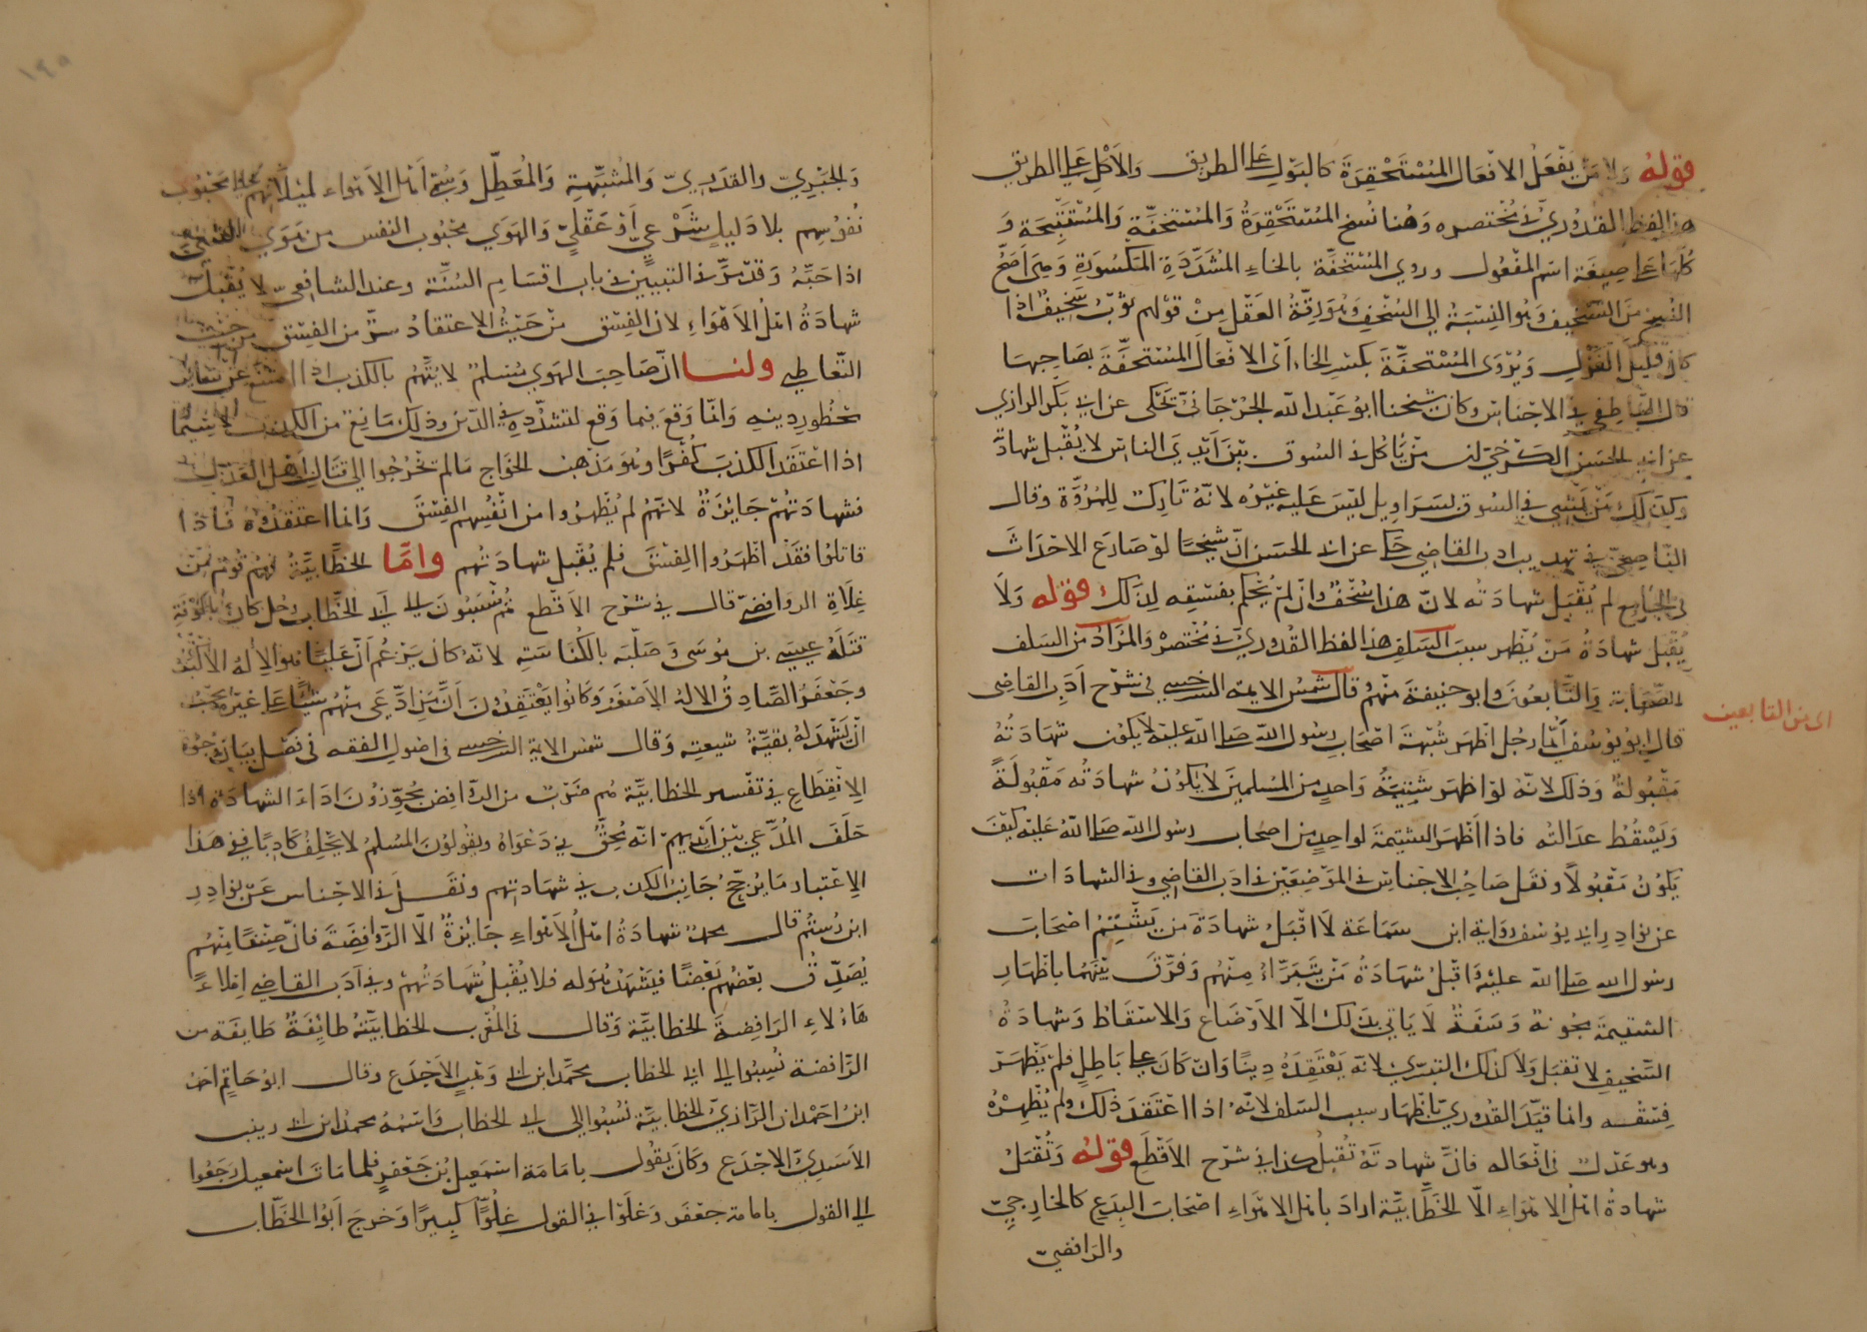 قوله ولا من يفعل الافعال المستحقرة كالبول على الطريق والاكل على الطريق
هذا لفظ القدوري في مختصره وهنا نسخ المستحقرة والمستخفة والمستقبحة و
كلها على صيغة اسم المفعول وروي المستخفة بالخاء المشددة المكسورة وهي اصح
النسخ من التسخيف وهو النسبة الى السخف وهو رقة العقل من قولهم ثوب سخيف اذا
كان قليل الغزل ويروى المستخفة بكسر الخاء اى الافعال المستخفة بصاحبها
قال الناطفي في الاجناس وكان شيخنا ابو عبد الله الجرجاني يحكى عن ابي بكر الرازي
عن ابي الحسن الكرخي ان من ياكل في السوق بين ايدي الناس لا يقبل شهادته
وكذلك من يمشي في السوق بسراويل ليس عليه غيره لانه تارك للمروة وقال
الناصحي في تهذيب ادب القاضي حكي عن ابي الحسن ان شيخا لو صارع الاحداث
في الجامع لم يقبل شهادته لان هذا سخف وان لم يحكم بفسقه لذلك قوله ولا
يقبل شهادة من يظهر سب السلف هذا لفظ القدوري في مختصره والمراد من السلف
الصحابة والتابعون وابو حنيفة منهم قال شمس الايمة السرخسي في شرح ادب القاضي
اى من التابعين
قال ابو يوسف ايما رجل اظهر شتيمة اصحاب رسول الله صلى الله عليه لا يكون شهادته
مقبولة وذلك لانه لو اظهر شتيمة واحد من المسلمين لا يكون شهادته مقبولة
ويسقط عدالته فاذا اظهر الشتيمة لواحد من اصحاب رسول الله صلى الله عليه كيف
يكون مقبولا ونقل صاحب الاجناس في الموضعين في ادب القاضي وفي الشهادات
عن نوادر ابي يوسف رواية ابن سماعة لا اقبل شهادة من يشتم اصحاب
رسول الله صلى الله عليه واقبل شهادة من يتبراء منهم وفرق بينهما باظهار
الشتيمة مجونة وسفه لا ياتي بذلك الا الاوضاع والاسقاط وشهادة
السخيف لا تقبل ولا كذلك التبرى لانه يعتقده دينا وان كان على باطل فلم يظهر
فسقه وانما قيد القدوري باظهار سب السلف لانه اذا اعتقد ذلك ولم يظهره
وهو عدل في افعاله فان شهادته تقبل كذا في شرح الاقطع قوله وتقبل
شهادة اهل الاهواء الا الخطابية اراد باهل الاهواء اصحاب البدع كالخارجي
والرافضي
والجبري والقدري والمشبهة والمعطل وسمي اهل الاهواء لميلانهم الى محبوب
نفوسهم بلا دليل شرعي او عقلي والهوى محبوب النفس من هوي الشيء
اذا حبه وقد مر في التبيين في باب اقسام السنة وعند الشافعي لا يقبل
شهادة اهل الاهواء لان الفسق من حيث الاعتقاد شر من الفسق من حيث
التعاطي ولنا ان صاحب الهوى مسلم لا يتهم بالكذب اذا امتنع عن تعاطي
محظور دينه وانما وقع فيما وقع لتشدده في الدين وذلك مانع من الكذب لا سيما
اذا اعتقد الكذب كفرا وهو مذهب الخوارج ما لم يخرجوا الى قتال اهل العدل
فشهادتهم جائزة لانهم لم يظهروا من انفسهم الفسق وانما اعتقدوه فاذا
قاتلوا فقد اظهروا الفسق فلم يقبل شهادتهم واما الخطابية فهم قوم من
غلاة الروافض قال في شرح الاقطع هم ينسبون الى ابي الخطاب رجل كان بالكوفة
قتله عيسى بن موسى وصلبه بالكناسة لانه كان يزعم ان عليا هو الاله الاكبر
وجعفر الصادق الاله الاصغر وكانوا يعتقدون ان من ادعى منهم شيئا على غيره يجب
ان يشهد له بقية شيعته وقال شمس الاية السرخسي في اصول الفقه في فصل بيان وجوه
الانقطاع في تفسير الخطابية هم ضرب من الروافض يجوزون اداء الشهادة اذا
حلف المدعي بين ايديهم انه محق في دعواه ويقولون المسلم لا يحلف كاذبا ففي هذا
الاعتبار ما يرجح جانب الكذب في شهادتهم ونقل في الاجناس عن نوادر
ابن رستم قال محمد شهادة اهل الاهواء جائزة الا الروافضة فان صنفا منهم
يصدق بعضهم بعضا فيشهد بقوله فلا يقبل شهادتهم وفي ادب القاضي املاء
هاولاء الرافضة الخطابية وقال في المغرب الخطابية طايفة طايفة من
الرافضة نسبوا الى ابي الخطاب محمد ابن ابي وهب الاجدع وقال ابو حاتم احمد
ابن احمدان الرازي الخطابية نسبوا الى ابي الخطاب واسمه محمد ابن ابي زينب
الاسدي الاجدع وكان يقول بامامة اسمعيل بن جعفر فلما مات اسمعيل رجعوا
الى القول بامامة جعفر وغلوا في القول غلوا كبيرا وخرج ابو الخطاب